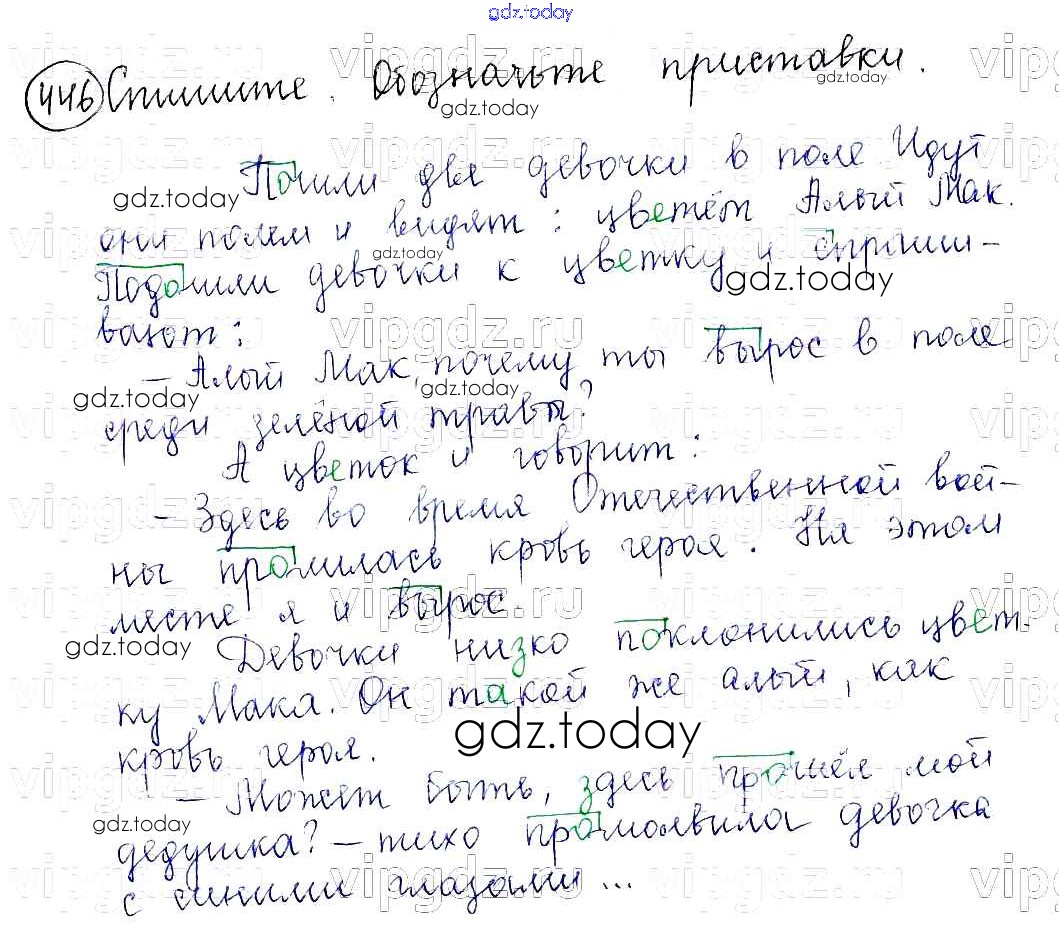 gdz.today
446 Спишите. Обозначьте приставки.
Пошли две девочки в поле Идут
они полем и видят: цветёт Алый Мак.
Подошли девочки к цветку и спраши-
вают:
– Алый Мак, почему ты вырос в поле
среди зелёной травы?
А цветок и говорит:
– Здесь во время Отечественной вой-
ны пролилась кровь героя. На этом
месте я и вырос
Девочки низко поклонились цвет-
ку Мака. Он такой же алый, как
кровь героя.
– Может быть, здесь прошёл мой
дедушка? – тихо промолвила девочка
с синими глазами...